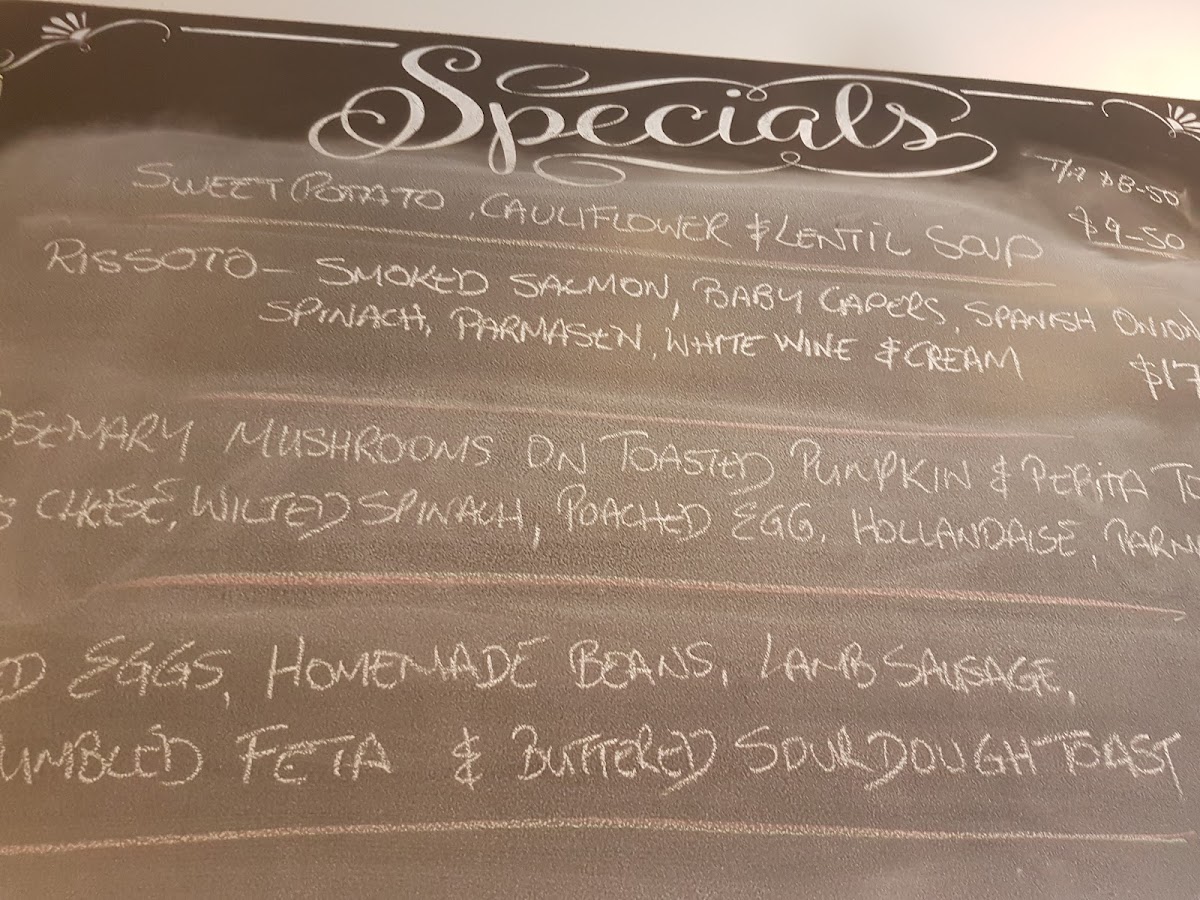 Specials
T/A $8-50
SWEET POTATO, CAULIFLOWER & LENTIL SOUP $9-50
RISSOTO - SMOKED SALMON, BABY CAPERS, SPANISH ONION
SPINACH, PARMASEN, WHITE WINE & CREAM $17
OSEMARY MUSHROOMS ON TOASTED PUMPKIN & PEPITA TO
S CHEESE, WILTED SPINACH, POACHED EGG, HOLLANDAISE, PARM
ED EGGS, HOMEMADE BEANS, LAMB SAUSAGE,
UMBLED FETA & BUTTERED SOURDOUGH TOAST